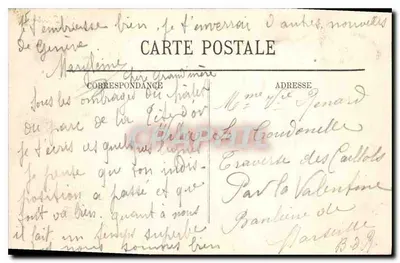 t'embrasse bien, je t'enverrai d'autres nouvelles
de Genève
CARTE POSTALE
CORRESPONDANCE
ADRESSE
Chère Grand'mère
Sous les ombrages du
du parc de la Tête d'or
je t'écris ces quelques lignes
je pense que ton indis-
position a passé et que
tout va bien. Quant à nous
il fait un temps superbe
et nous sommes bien
Mme Vve Renard
Villa
Traverse des Caillols
Par la Valentine
Banlieue de
Marseille
B.D.R.